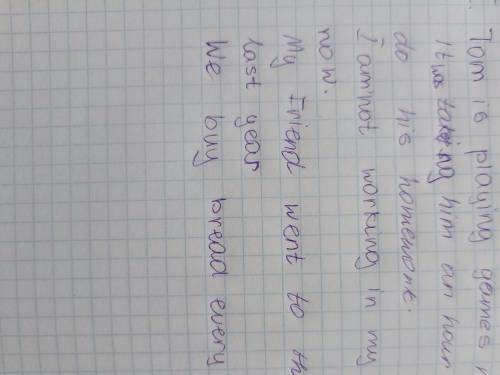 Tom is playing games
It was taking him an hour
do his homework.
I am not working in my
now.
My Friend went to th
last year
We buy bread every